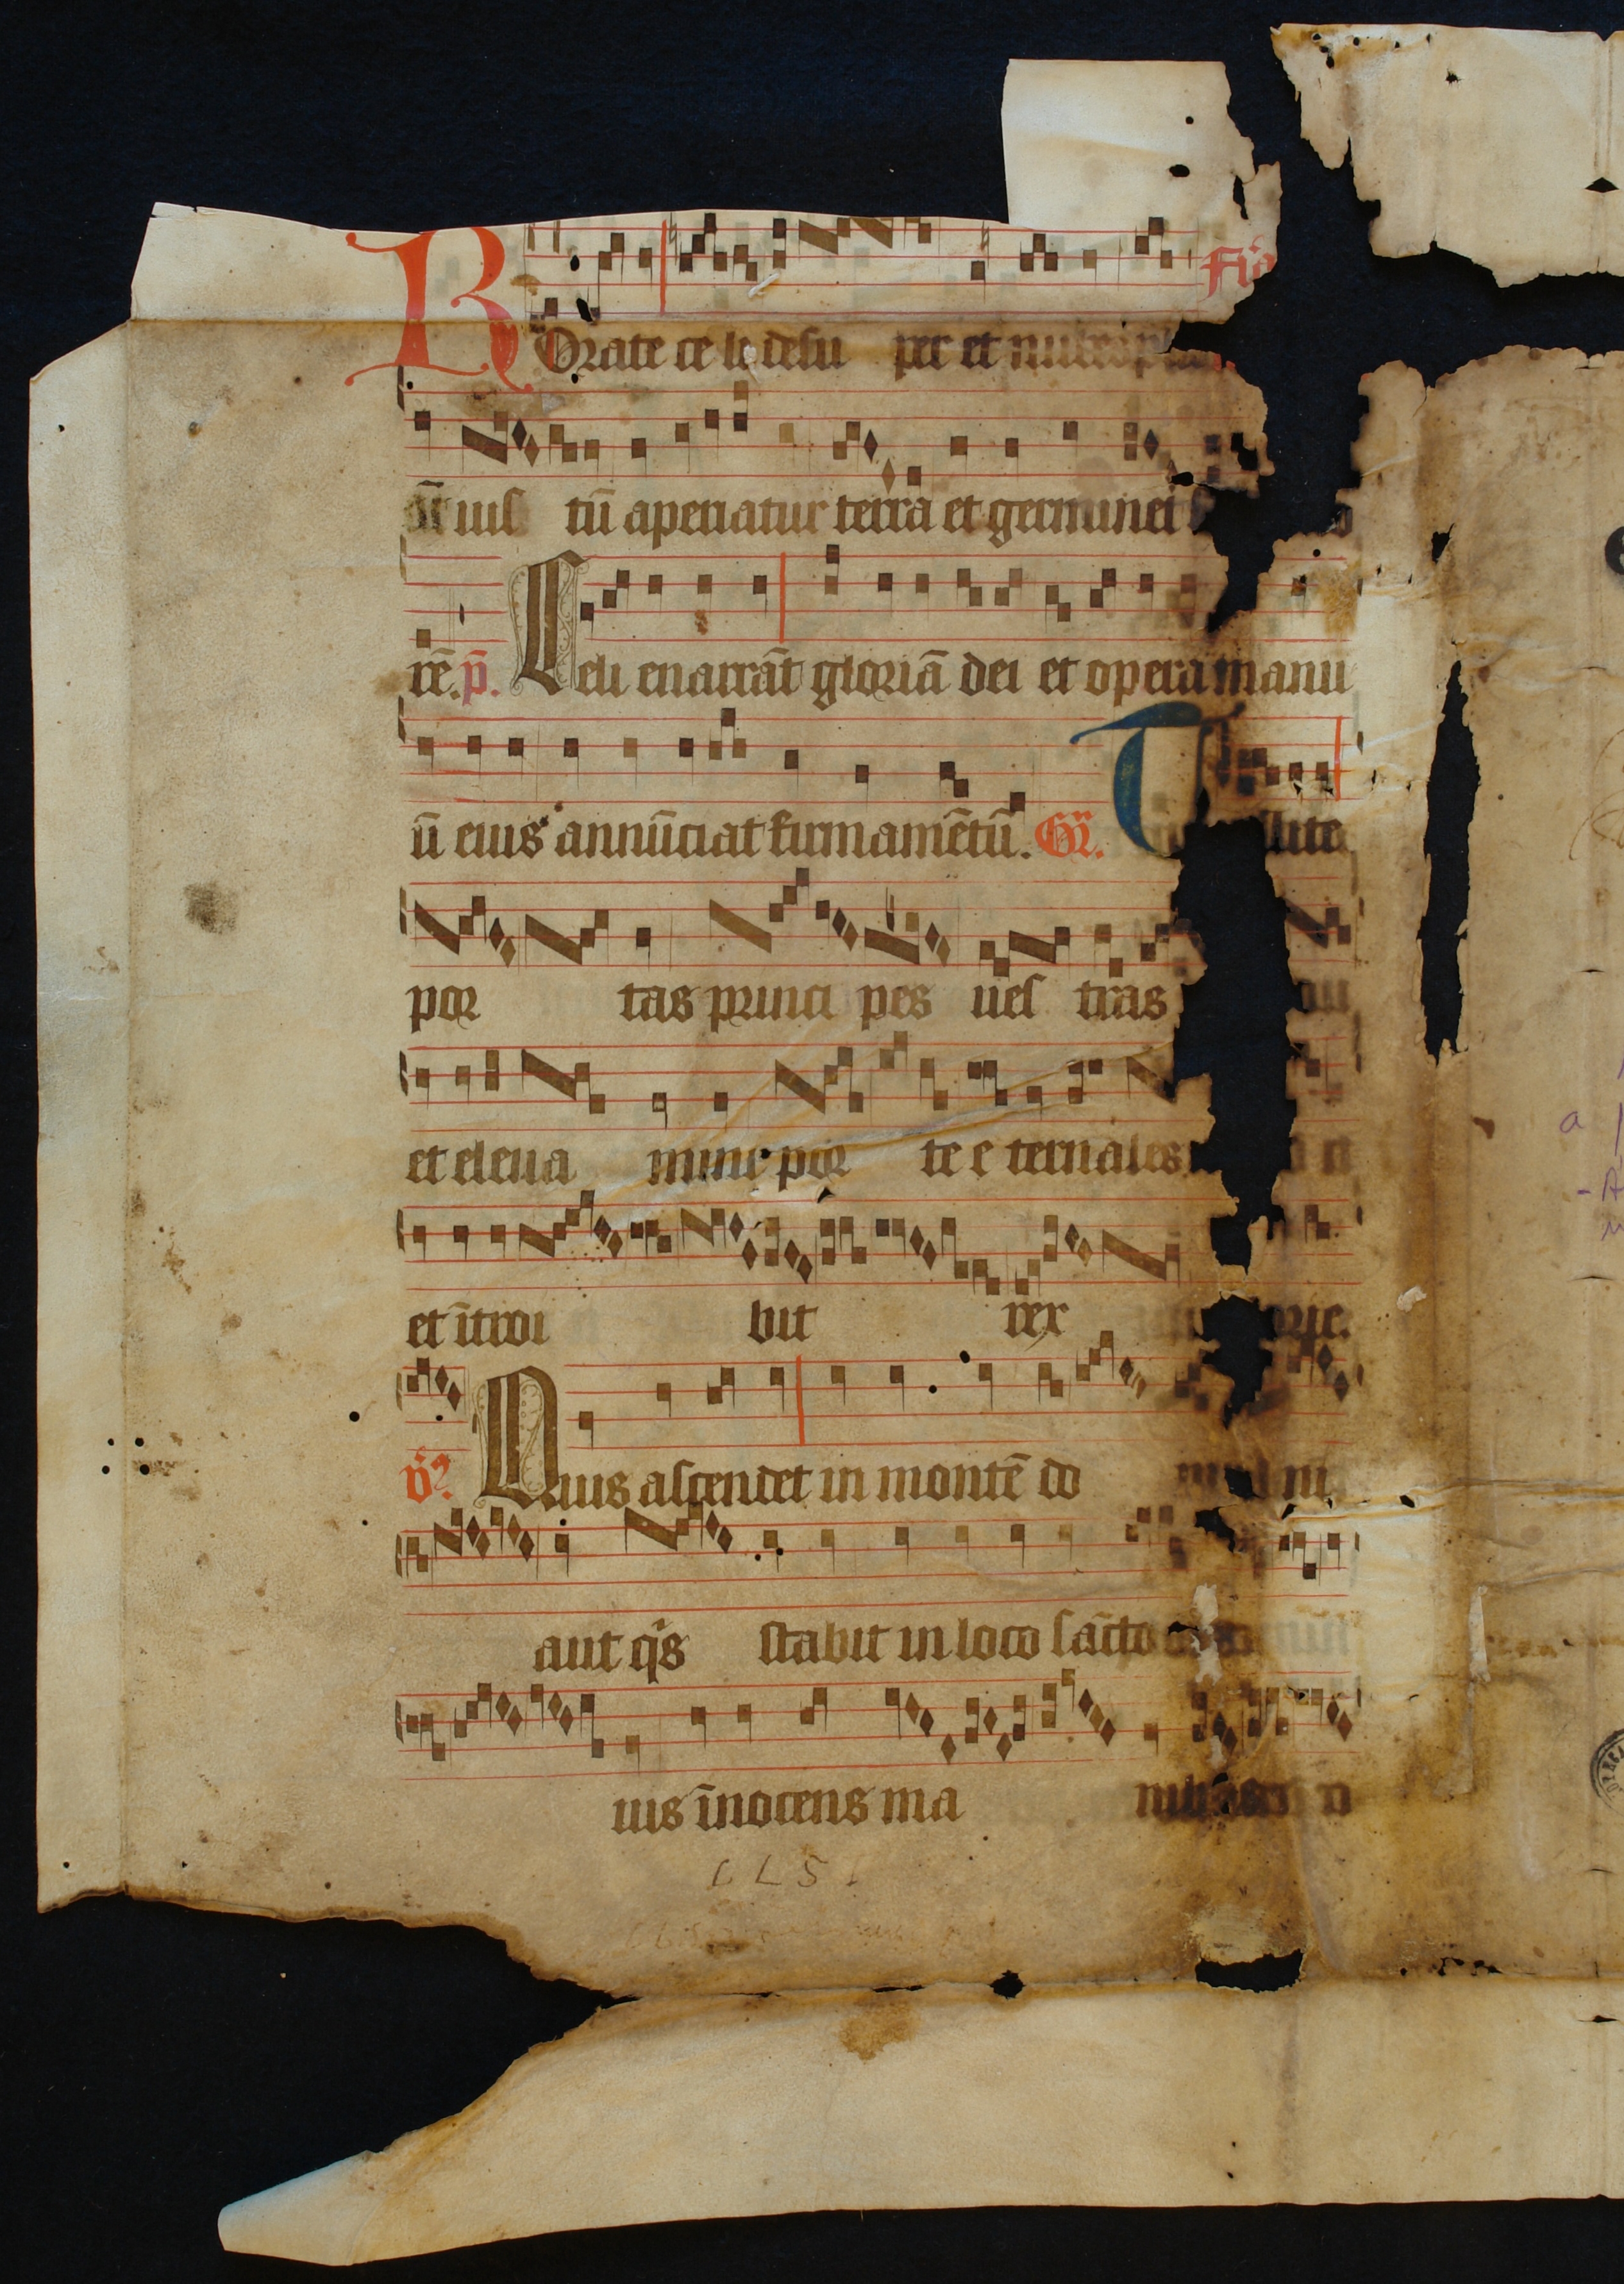 Rorate celi desu per et nubes plu
āt ius tū aperiatur terra et germinet
rē. p̄. Celi enarrāt gloriā dei et opera manu
ū eius annūciat firmamētū. Gr̄. Tollite
por tas princi pes ues tras
et eleua mini por te e ternales
et ītroi bit rex orie.
v̄. Quis ascendet in montē do mi ni
aut qis stabit in loco sācto
uis īnocens ma nibus